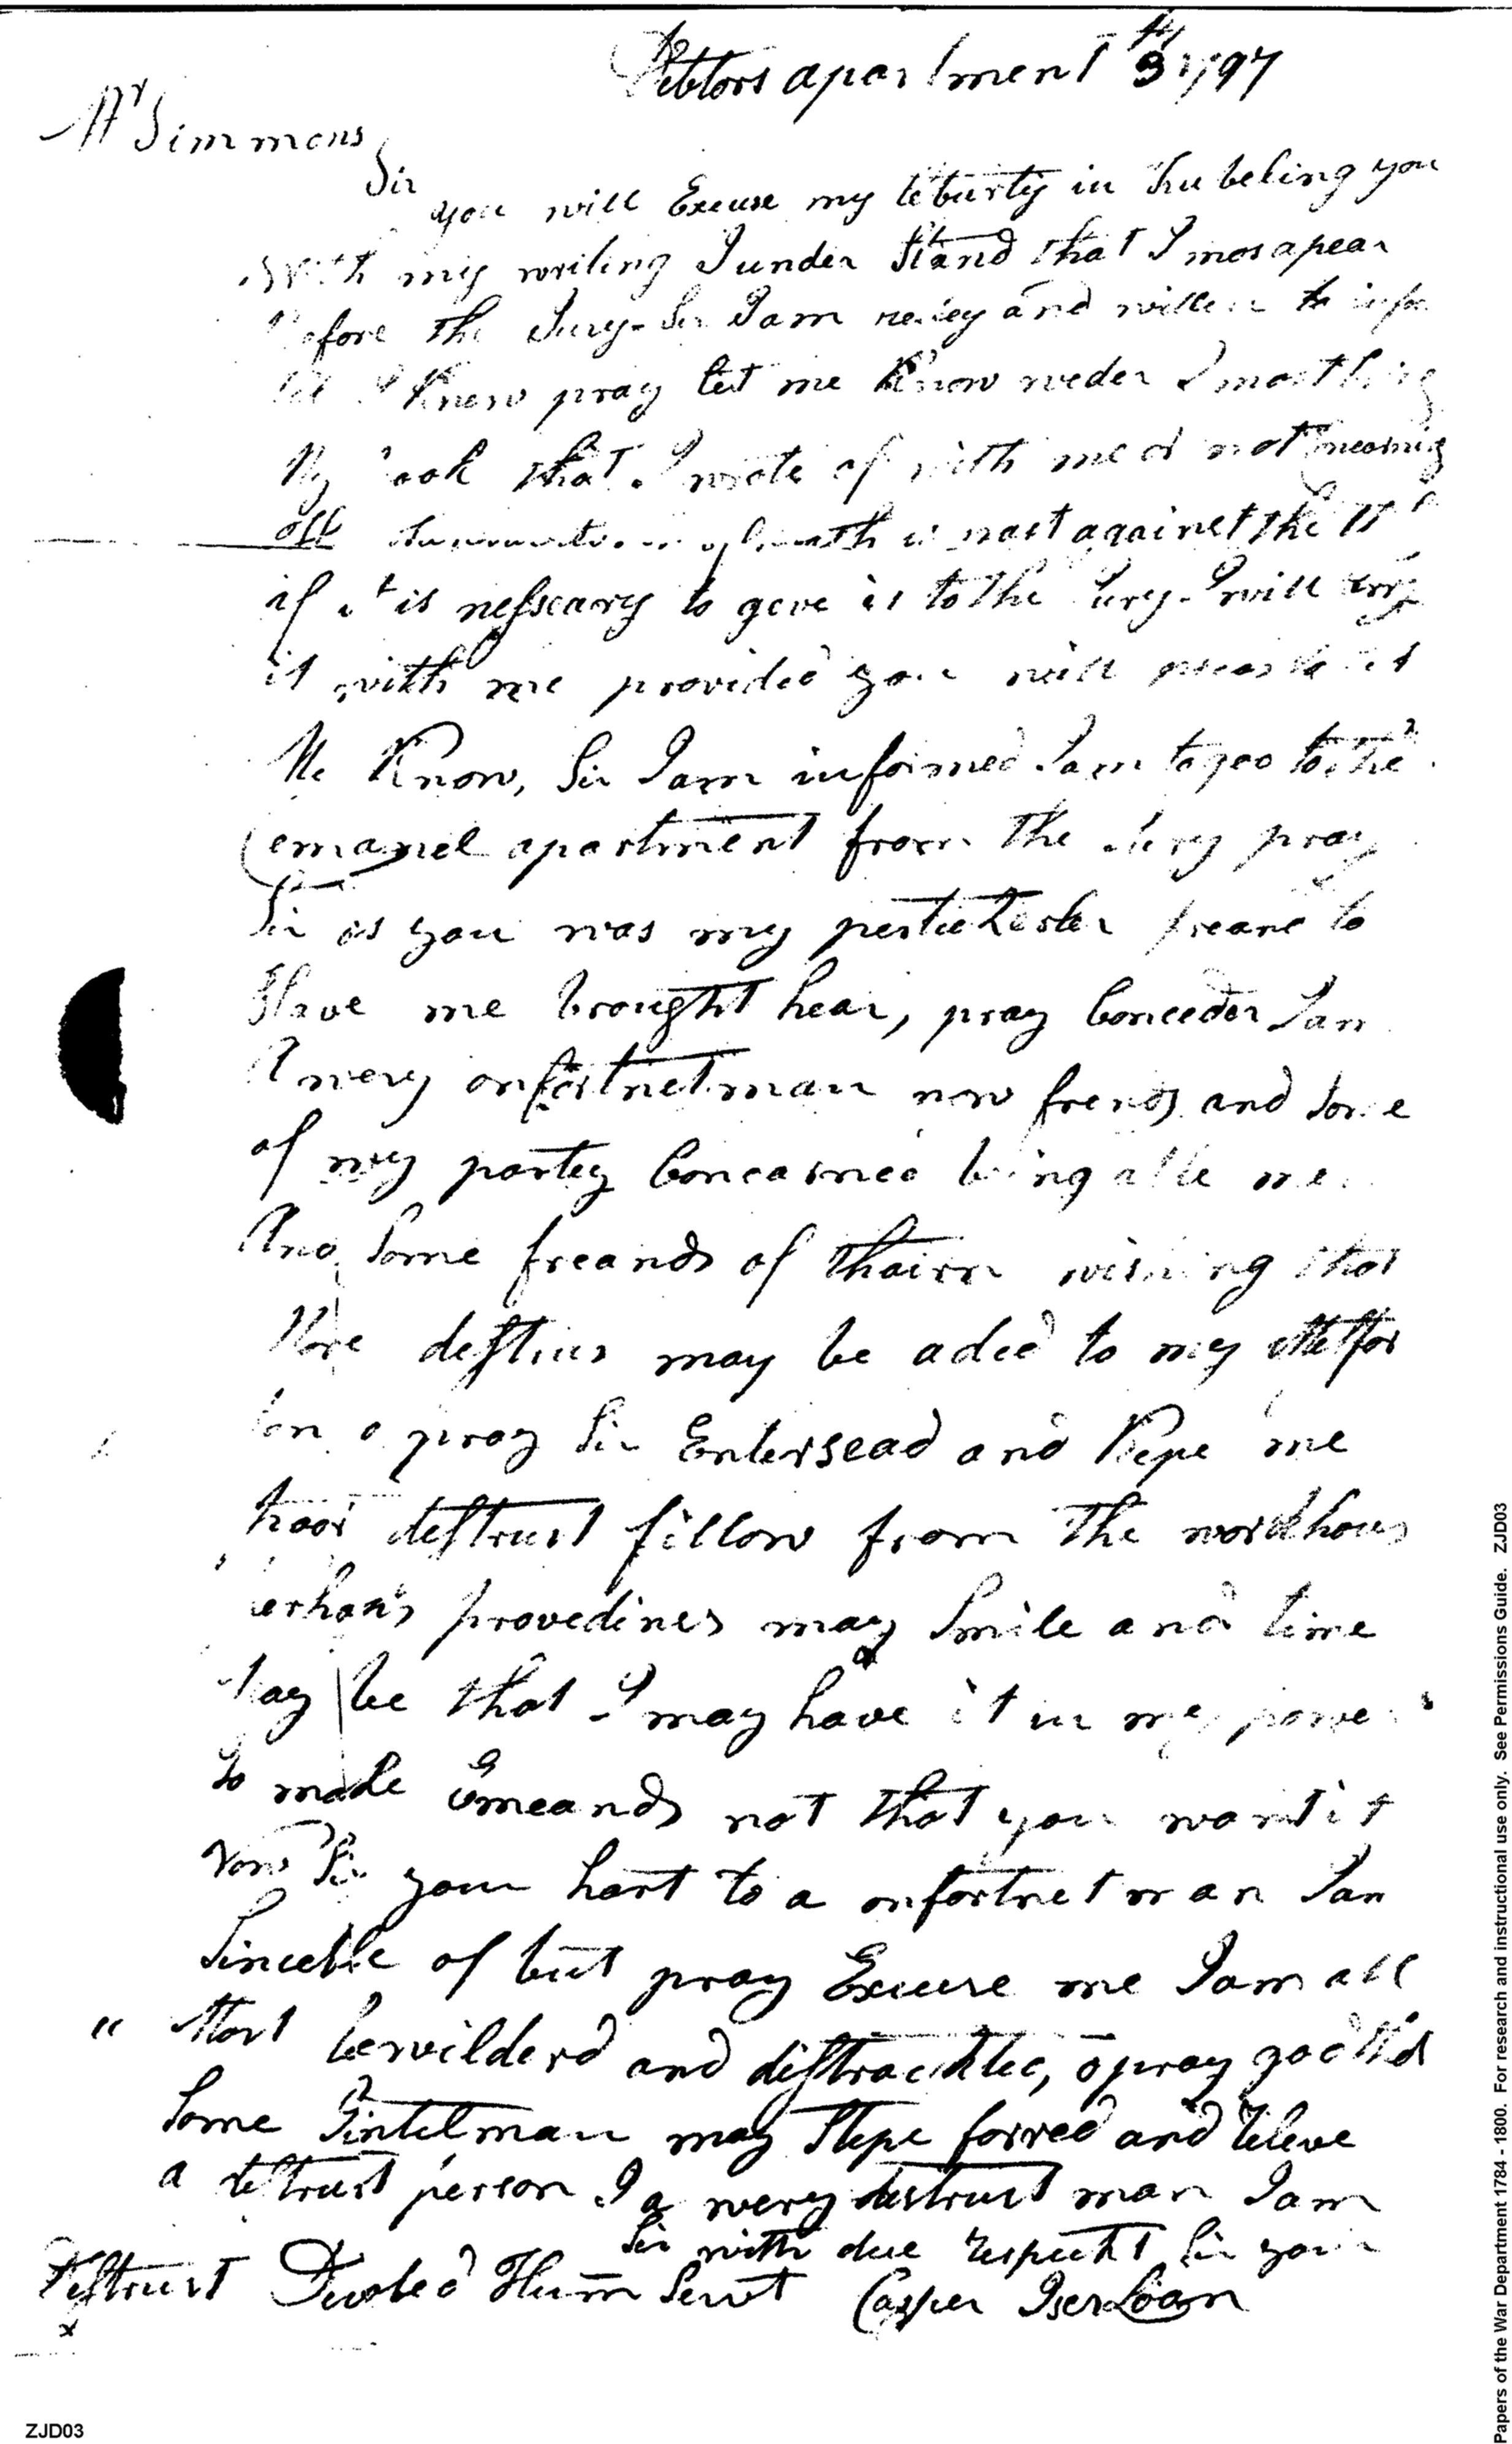 Debtors apartment 3th 1797
Mr Simmons
Sir
you will Excuse my leburty in trubeling you
With my writing I under Stand that I mos apear
Before the Jury - Sir I am redey and willen to
I Know pray let me Know weder I most bring
My book that I wrote of with me or not meaning
off is nast against the
if it is nesseary to geve it to the Jury - I will
it with me provided you will let
Me Know, Sir I am informed I am to goo to the
Cemanel apartment from the Jury pray
Sir as you was my pertickerler freand to
Have me brought hear, pray Conceder I am
A wery onfortnet man now frends and Some
of my partey Concarned being
And Some freands of thairn wishing that
More destres may be aded to my Messfor
ton o pray Sir Entersead and Kepe me
poor destrust fillow from the workhous
perhaps provedines may Smile and time
May be that I may have it in my power
to make Emeands not that you want it
Now Sir your hart to a onfortnet man I am
Sincebile of but pray Excuse me I am all
" Most bewilderd and distrackted, o pray god that
Some Gintelman may Stepe forred and releve
a destrust person I a wery destrust man I am
Sir with due respeckt Sir your
Destrust Devoted Hum Servt Casper Iserloan
x
Papers of the War Department 1784 - 1800. For research and instructional use only. See Permissions Guide. ZJD03
ZJD03